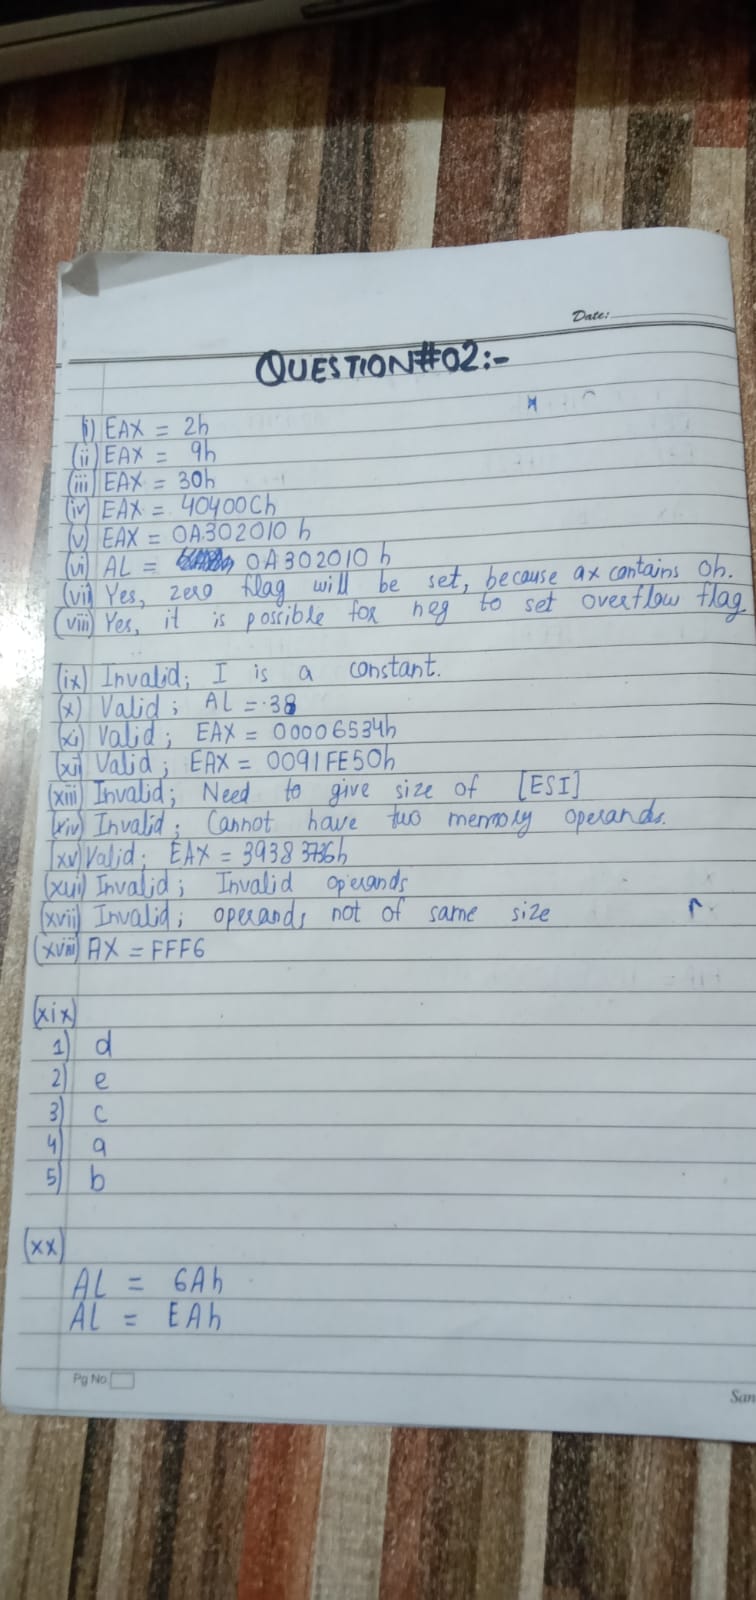 Date:
QUESTION#02:-
(i) EAX = 2h
(ii) EAX = 9h
(iii) EAX = 30h
(iv) EAX = 40400Ch
(v) EAX = 0A302010h
(vi) AL = 0A302010h
(vii) Yes, zero flag will be set, because ax contains 0h.
(viii) Yes, it is possible for neg to set overflow flag
(ix) Invalid; I is a constant.
(x) Valid; AL = 38
(xi) Valid; EAX = 00006534h
(xii) Valid; EAX = 0091FE50h
(xiii) Invalid; Need to give size of [ESI]
(xiv) Invalid; Cannot have two memory operands.
(xv) Valid; EAX = 39383736h
(xvi) Invalid; Invalid operands
(xvii) Invalid; operands not of same size
(xviii) AX = FFF6
(xix)
1) d
2) e
3) c
4) a
5) b
(xx)
AL = 6Ah
AL = EAh
Pg No
San